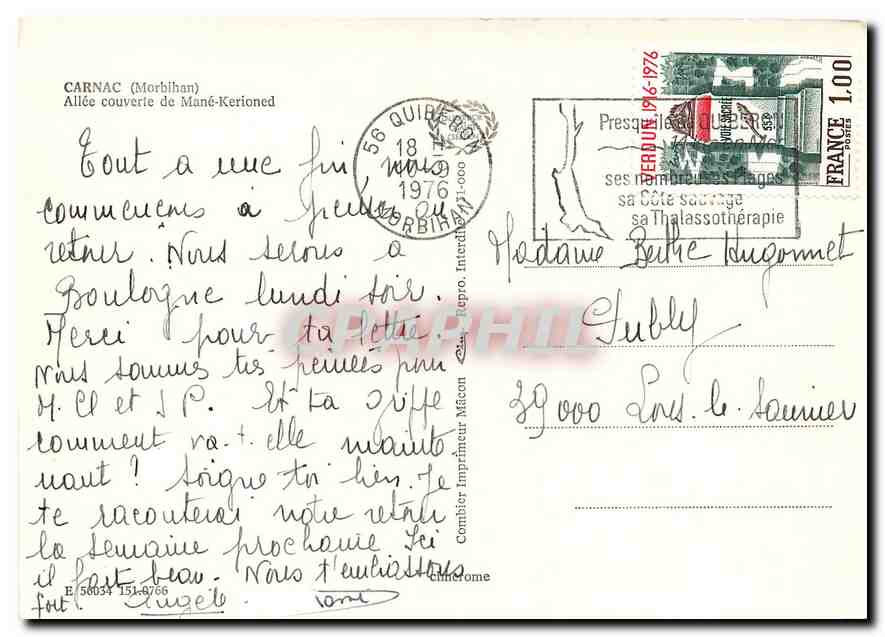 CARNAC (Morbihan)
Allée couverte de Mané-Kerioned
Tout a une fin, nous
commençons à penser au
retour. Nous serons à
Boulogne lundi soir.
Merci pour ta lettre.
Nous sommes très peinés pour
M. Cl et J P. Et ta griffe
comment va-t-elle mainte-
nant ? Soigne toi bien. Je
te raconterai notre retour
la semaine prochaine. Ici
il fait beau. Nous t'embrassons
fort. Angèle
E 56034 151.0766
cimcrome
Combier Imprimeur Mâcon Cim Repro. Interdite 11-000
56 QUIBERON
18 H
10-9
1976
MORBIHAN
Presqu'île de QUIBERON
ses nombreuses Plages
sa Côte sauvage
sa Thalassothérapie
VERDUN 1916-1976
VOIE SACRÉE
FRANCE 1,00
POSTES
Madame Berthe Hugonnet
39000 Lons-le-Saunier
CPAPHIL